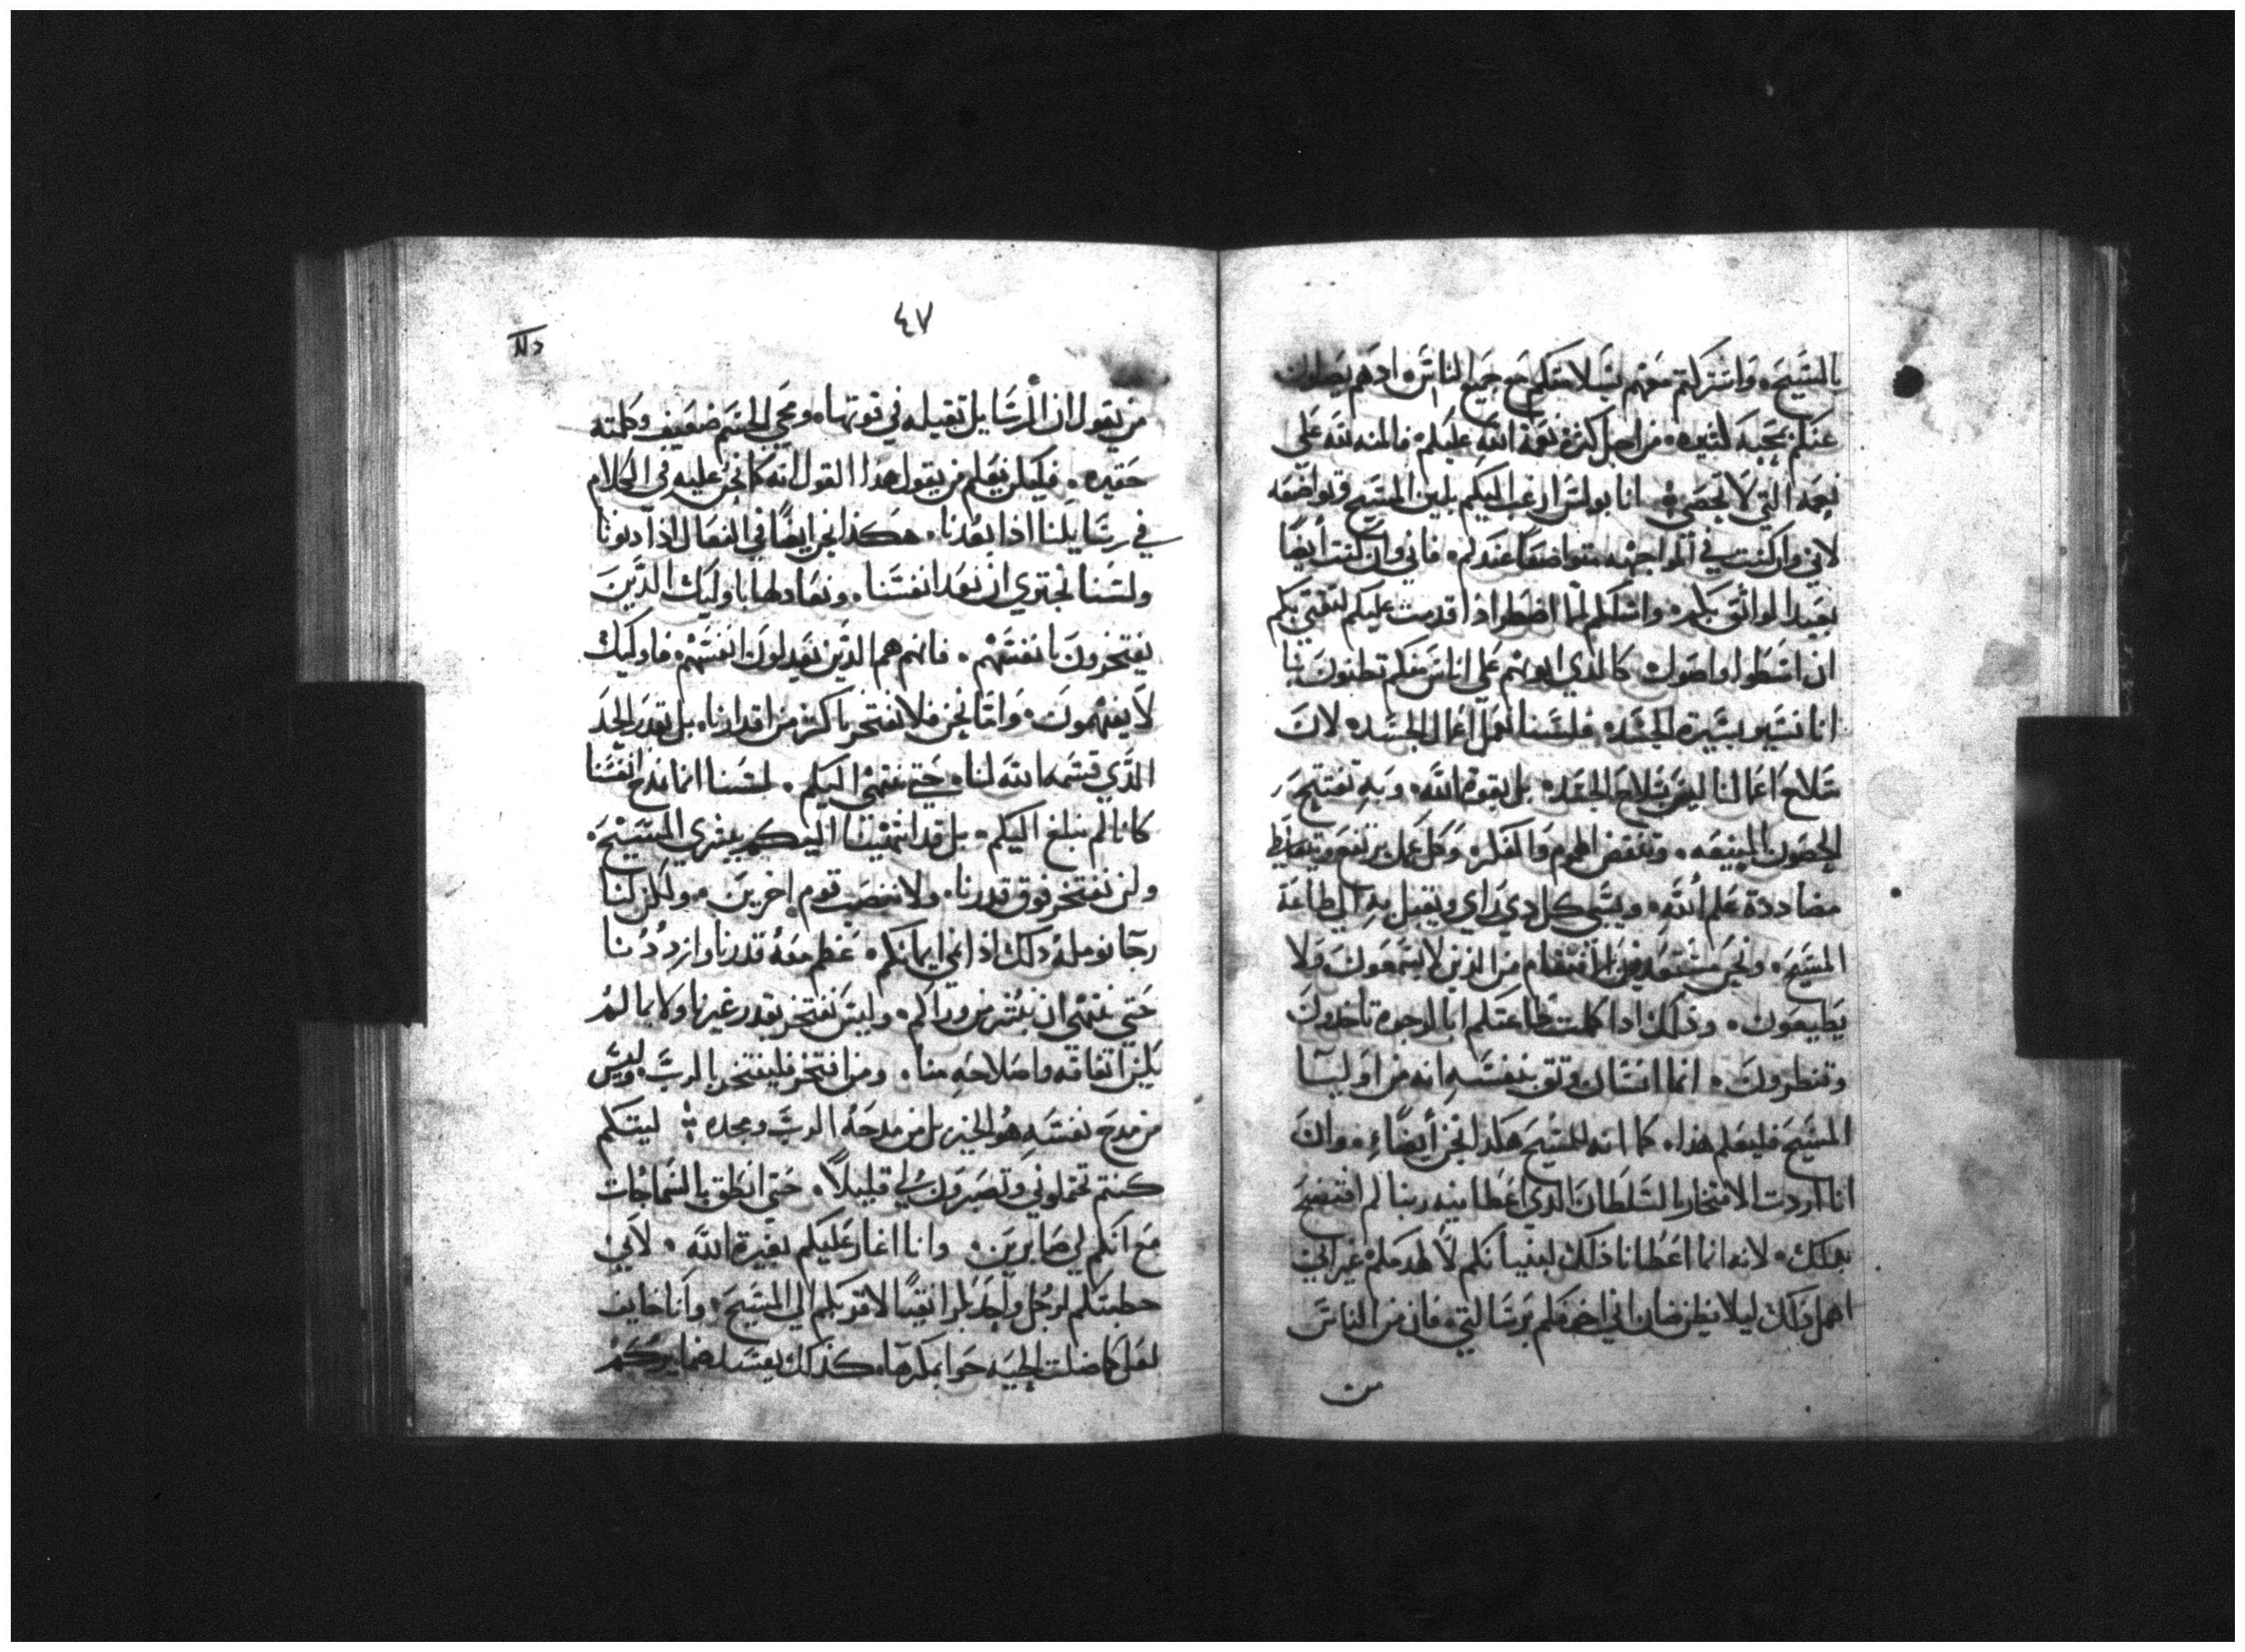 بالمسيح، واشتركتم معهم بسلامتكم مع جميع الناس، اذهم يصلون
عنكم بمحبة كثيره، من اجل كثرة نعمة الله عليكم، فالمنه لله علي
نعمه التي لا تحصي، انا بولس ارغب اليكم بلين المسيح وتواضعه
لاني وان كنت في المواجهه متواضعا عندكم، فاني وان كنت أيضا
بعيدا لواثق بكم، واسلكم لما اضطر اذا قدمت عليكم لثقتي بكم
ان اسطوا واصول، كالذي اهوبهم علي اناس منكم تظنون بنا
انا نسير بسيرة الجسد، فلسنا نعمل اعمال الجسد، لان
سلاح اعمالنا ليس بسلاح الجسد، بل بقوة الله، وبه تفتتح
الحصون المنيعه، وتنقض الهمم والفكر، وكل عمل يرتفع ويتعاظم
مضاددة علم الله، ويسبي كل ذي راي ويقبل به الي طاعة
المسيح، ونحن مستعدين الانتقام من الذين لا يسمعون، ولا
يطيعون، وذلك اذا كملت طاعتكم ابالوجوه تاخذون
وتنظرون، ايما انسان وثق بنفسه انه من اوليا
المسيح فليعلم هذا، كما انه للمسيح هكذا نحن أيضا، وان
انا اردت الافتخار بالسلطان الذي اعطانيه ربنا لم افتضح
بذلك، لانه انما اعطانا ذلك لبنيانكم لا لهدمكم غير اني
اهمل ذلك ليلا يظن ضان اني اخوفكم برسالتي، فان من الناس
من
٤٧
من يقول ان الرسايل ثقيله في قوتها، ومجي الجسم ضعيف وكلمته
حقيره، فليعلم من يقول هذا القول انه كما نحن عليه في الكلام
في رسايلنا اذا بعدنا، هكذا نحن ايضا في الفعال اذا دنونا
ولسنا نجتري ان نعد انفسنا، ونعادلها باوليك الذين
يفتخرون بانفسهم، فانهم هم الذين يعدلون انفسهم، فاوليك
لا يفهمون، واما نحن فلا نفتخر باكثر من اقدارنا، بل بقدر الحد
الذي قسمه الله لنا، حتي ننتهي اليكم، لسنا انما نمدح انفسنا
كانا لم نبلغ اليكم، بل قد انتهينا اليكم ببشري المسيح،
ولن نفتخر فوق قدرنا، ولا بنصب قوم اخرين، ولكن لنا
رجا نوملهُ ذلك اذا نمي ايمانكم، عظم معهُ قدرنا وازددنا
حتي ننتهي ان نبشر من وراكم، وليس نفتخر بقدر غيرنا ولا بما لم
يكن اتقانه واصلاحه منا، ومن افتخر فليفتخر بالرب، وليس
من مدح نفسه هو الخير بل من مدحه الرب ومجده، ليتكم
كنتم تحتملوني وتصبرون لي قليلاً، حتي انطق بالسماجات
مع انكم لي صابرين، وانا اغار عليكم بغيرة الله، لاني
خطبتكم لرجل واحد بكرا نقيا لاقربكم الي المسيح، وانا خايف
لعل كما ضلت الحيه حوا بمكرها، كذلك يفسد ضمايركم